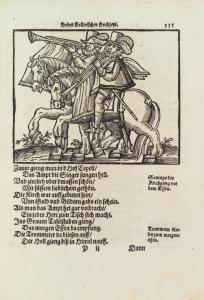 Hohen Zollerischen Hochzeyt.
Zuuor gieng man in d Hof Capell/
Das Ampt die Singer sangen hell.
Vnd zierlich vber dmassen schön/
Mit süssem lieblichem gethön.
Die Kirch war auffgebutzet sein/
Von Gold vnd Bildern gabs ein schein.
Als man das Ampt het gar volbracht/
Ein jeder Herr zum Tisch sich macht.
Ins Grauen Tafelstuben gieng/
Das morgen Essen da empfieng.
Die Trommeter da bliesen auff/
Der Hall gieng biß in Himel nauff.
Gienge zu
Kirchgang vor
dem Essen.
Trommeten
zum morgens
essen.
P ij
Dann